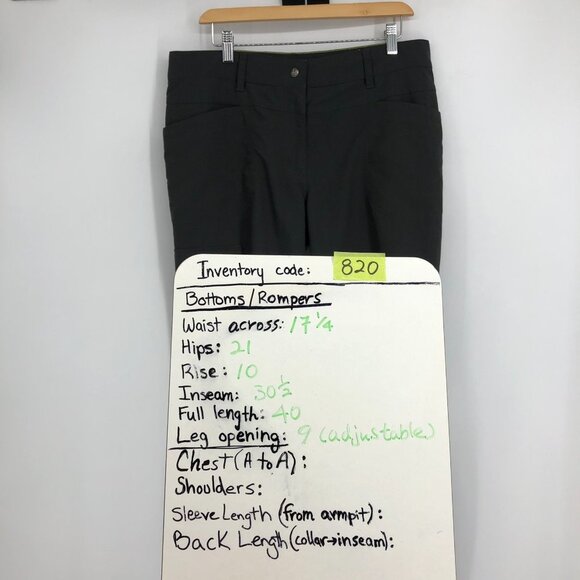 Inventory code: 820
Bottoms/Rompers
Waist across: 17 1/4
Hips: 21
Rise: 10
Inseam: 30 1/2
Full length: 40
Leg opening: 9 (adjustable)
Chest (A to A):
Shoulders:
Sleeve Length (from armpit):
Back Length (collar→inseam):